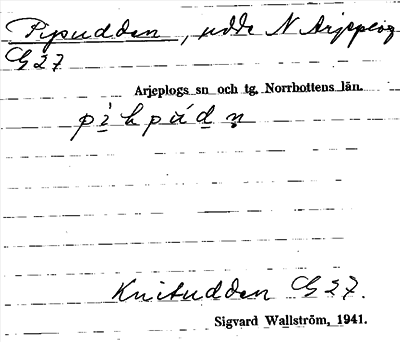 Pipudden, udde N Arjeplog
G 27
Arjeplogs sn och tg, Norrbottens län.
Knitudden G 27.
Sigvard Wallström, 1941.